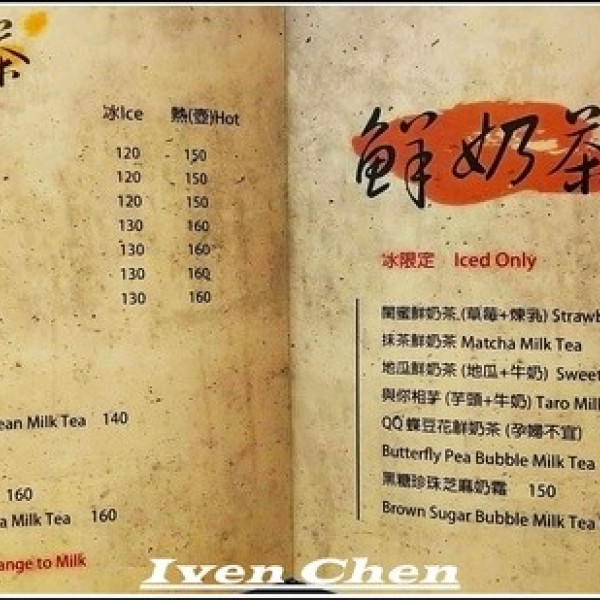 茶
冰Ice 熱(壺)Hot
120 150
120 150
120 150
130 160
130 160
130 160
130 160
ean Milk Tea 140
160
a Milk Tea 160
ange to Milk
鮮奶茶
冰限定 Iced Only
閨蜜鮮奶茶 (草莓+煉乳) Strawb
抹茶鮮奶茶 Matcha Milk Tea
地瓜鮮奶茶 (地瓜+牛奶) Sweet
與你相芋 (芋頭+牛奶) Taro Milk
QQ 蝶豆花鮮奶茶 (孕婦不宜)
Butterfly Pea Bubble Milk Tea
黑糖珍珠芝麻奶霜 150
Brown Sugar Bubble Milk Tea
Iven Chen